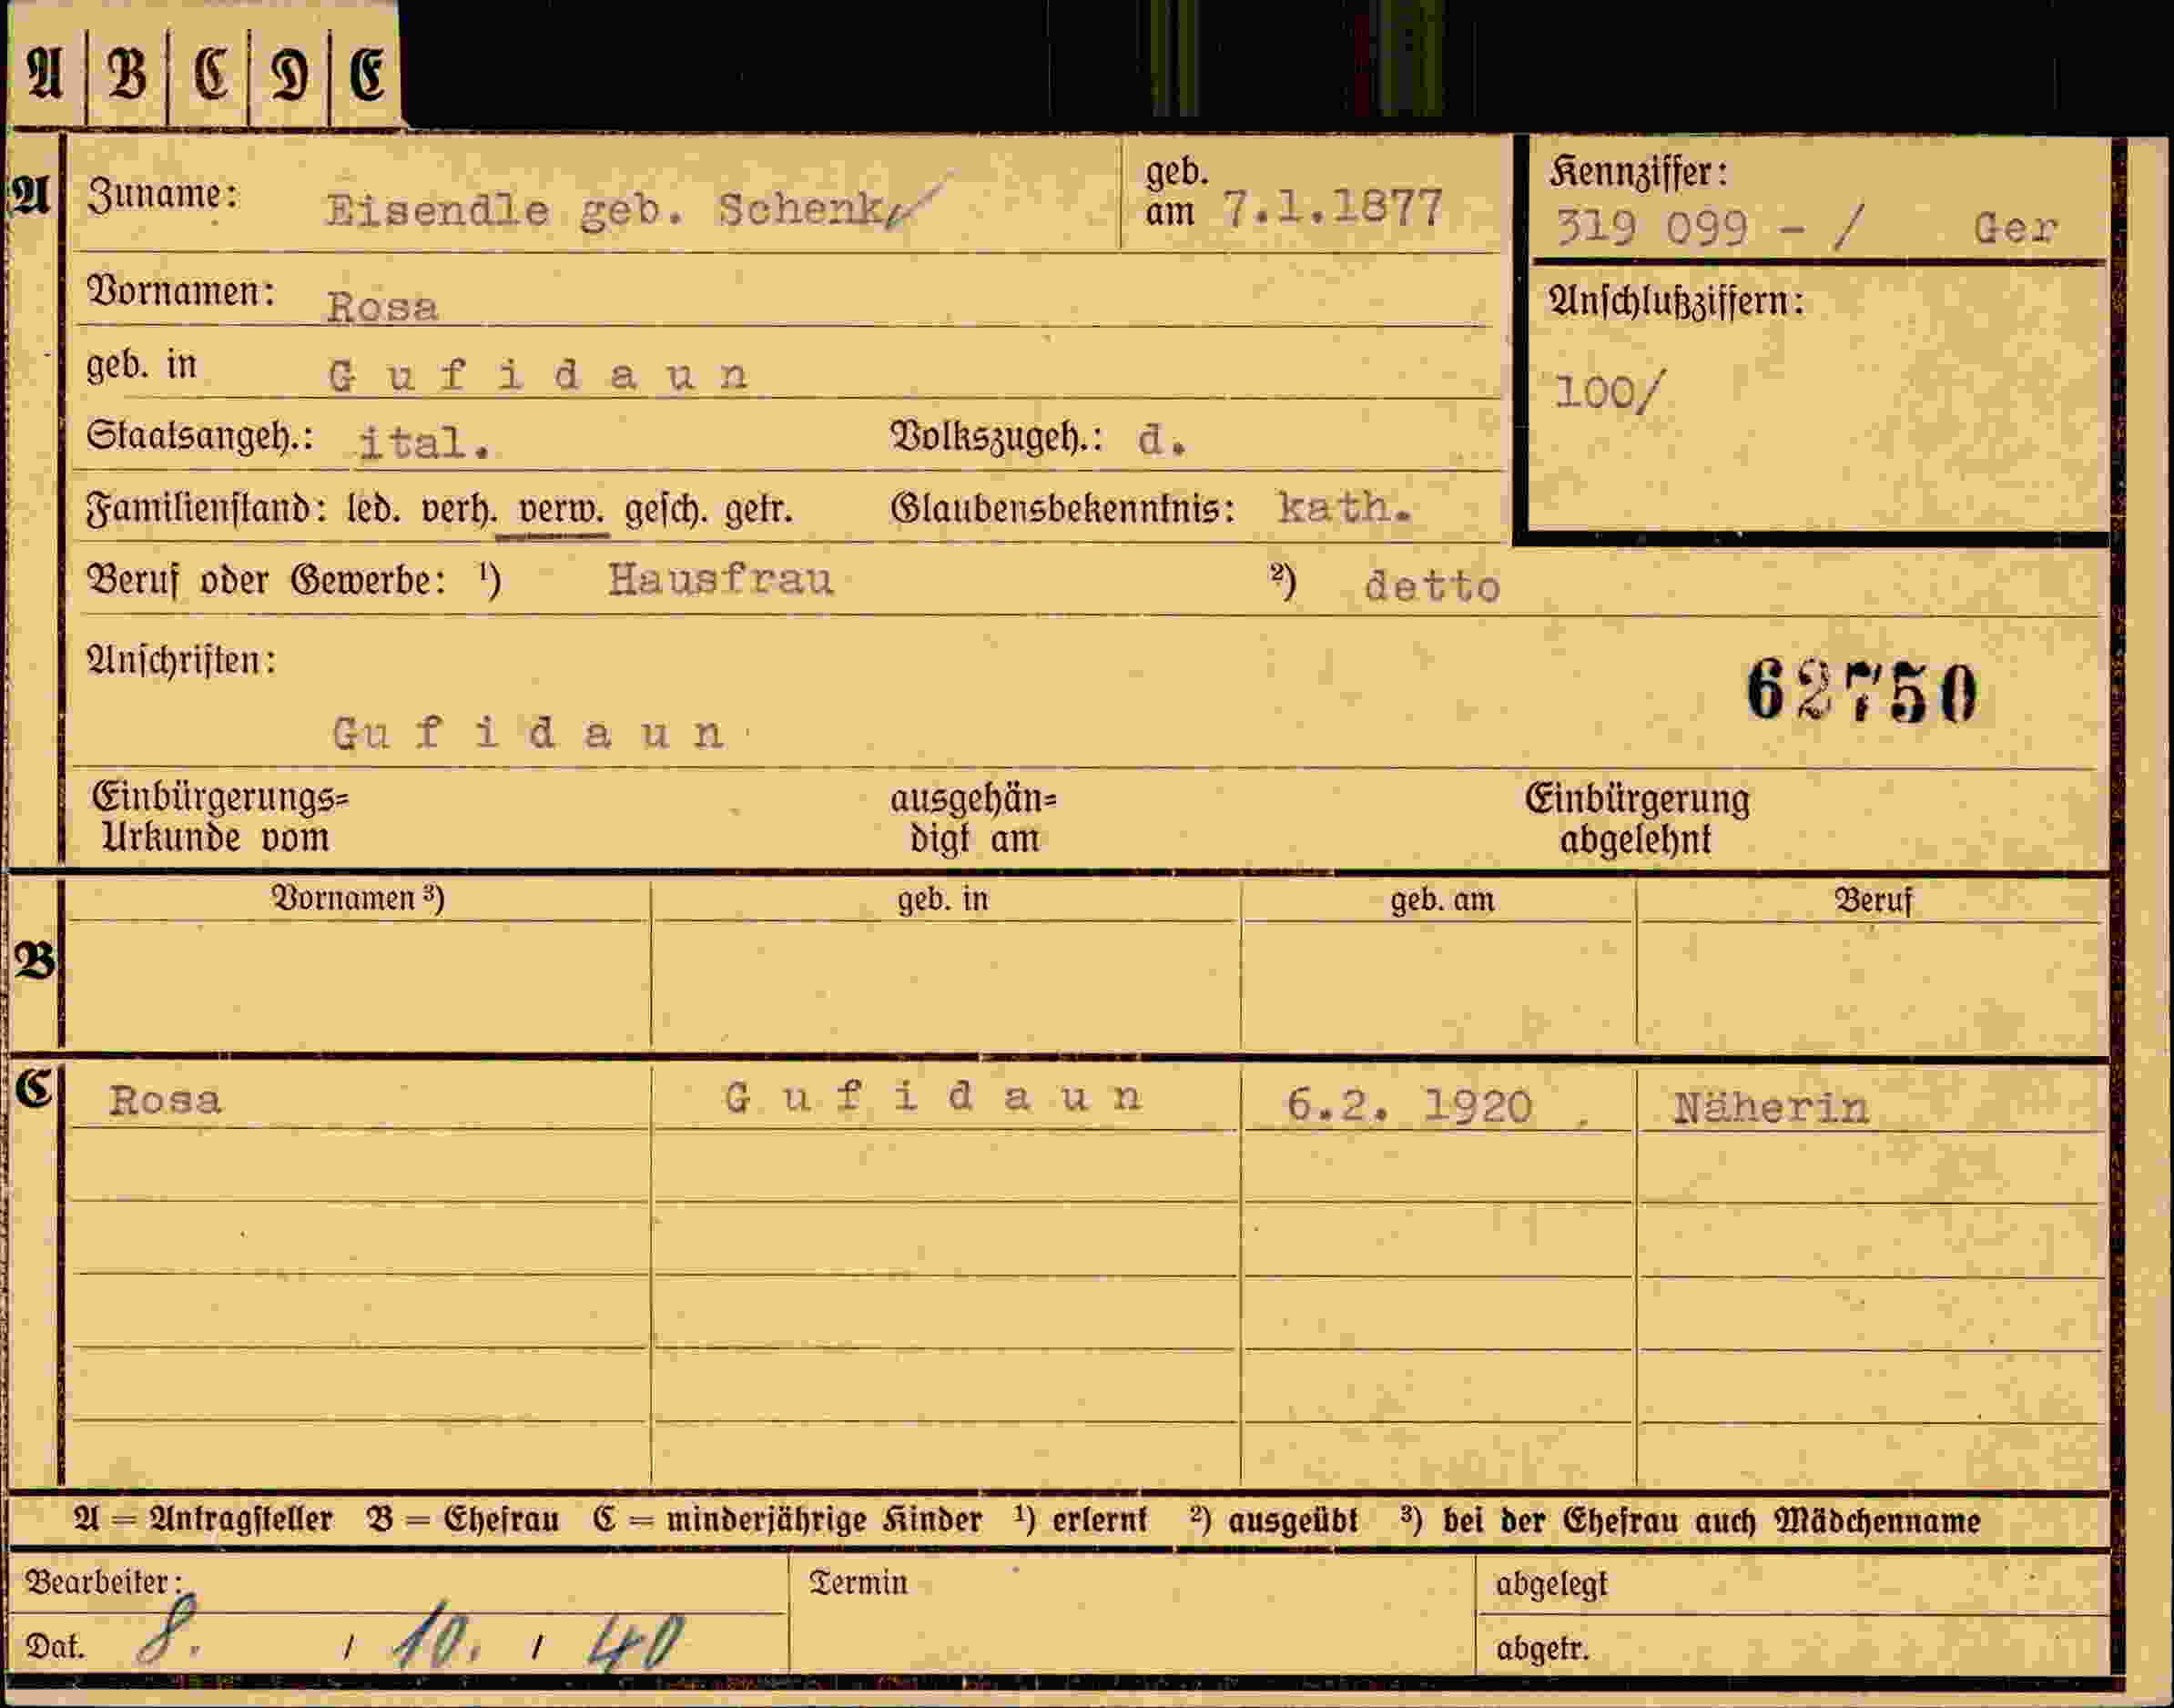 A | B | C | D | E
A
Zuname: Eisendle geb. Schenk
geb. am 7.1.1877
Kennziffer:
319 099 - / Ger
Vornamen: Rosa
Anschlußziffern:
100/
geb. in G u f i d a u n
Staatsangeh.: ital. Volkszugeh.: d.
Familienstand: led. verh. verw. gesch. getr. Glaubensbekenntnis: kath.
Beruf oder Gewerbe: ¹) Hausfrau ²) detto
Anschriften:
62750
Gu f i d a u n
Einbürgerungs= ausgehän= Einbürgerung
Urkunde vom digt am abgelehnt
B
Vornamen ³) geb. in geb. am Beruf
C
Rosa G u f i d a u n 6.2. 1920 Näherin
A = Antragsteller B = Ehefrau C = minderjährige Kinder ¹) erlernt ²) ausgeübt ³) bei der Ehefrau auch Mädchenname
Bearbeiter: Termin abgelegt
Dat. 8. / 10. / 40 abgetr.